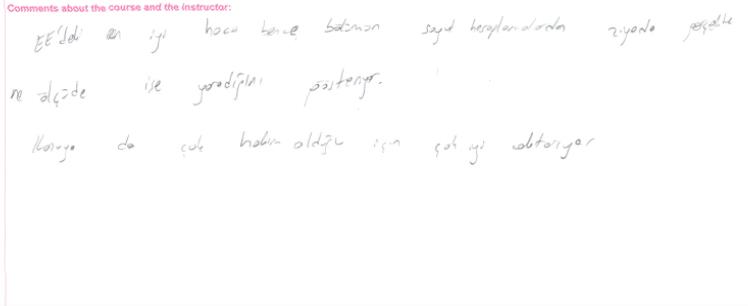 Comments about the course and the instructor:
EE'deki en iyi hoca bence batıman soyut hesaplamalardan ziyade gerçekte
ne ölçüde işe yaradığını gösteriyor.
Konuya da çok hakim olduğu için çok iyi aktarıyor